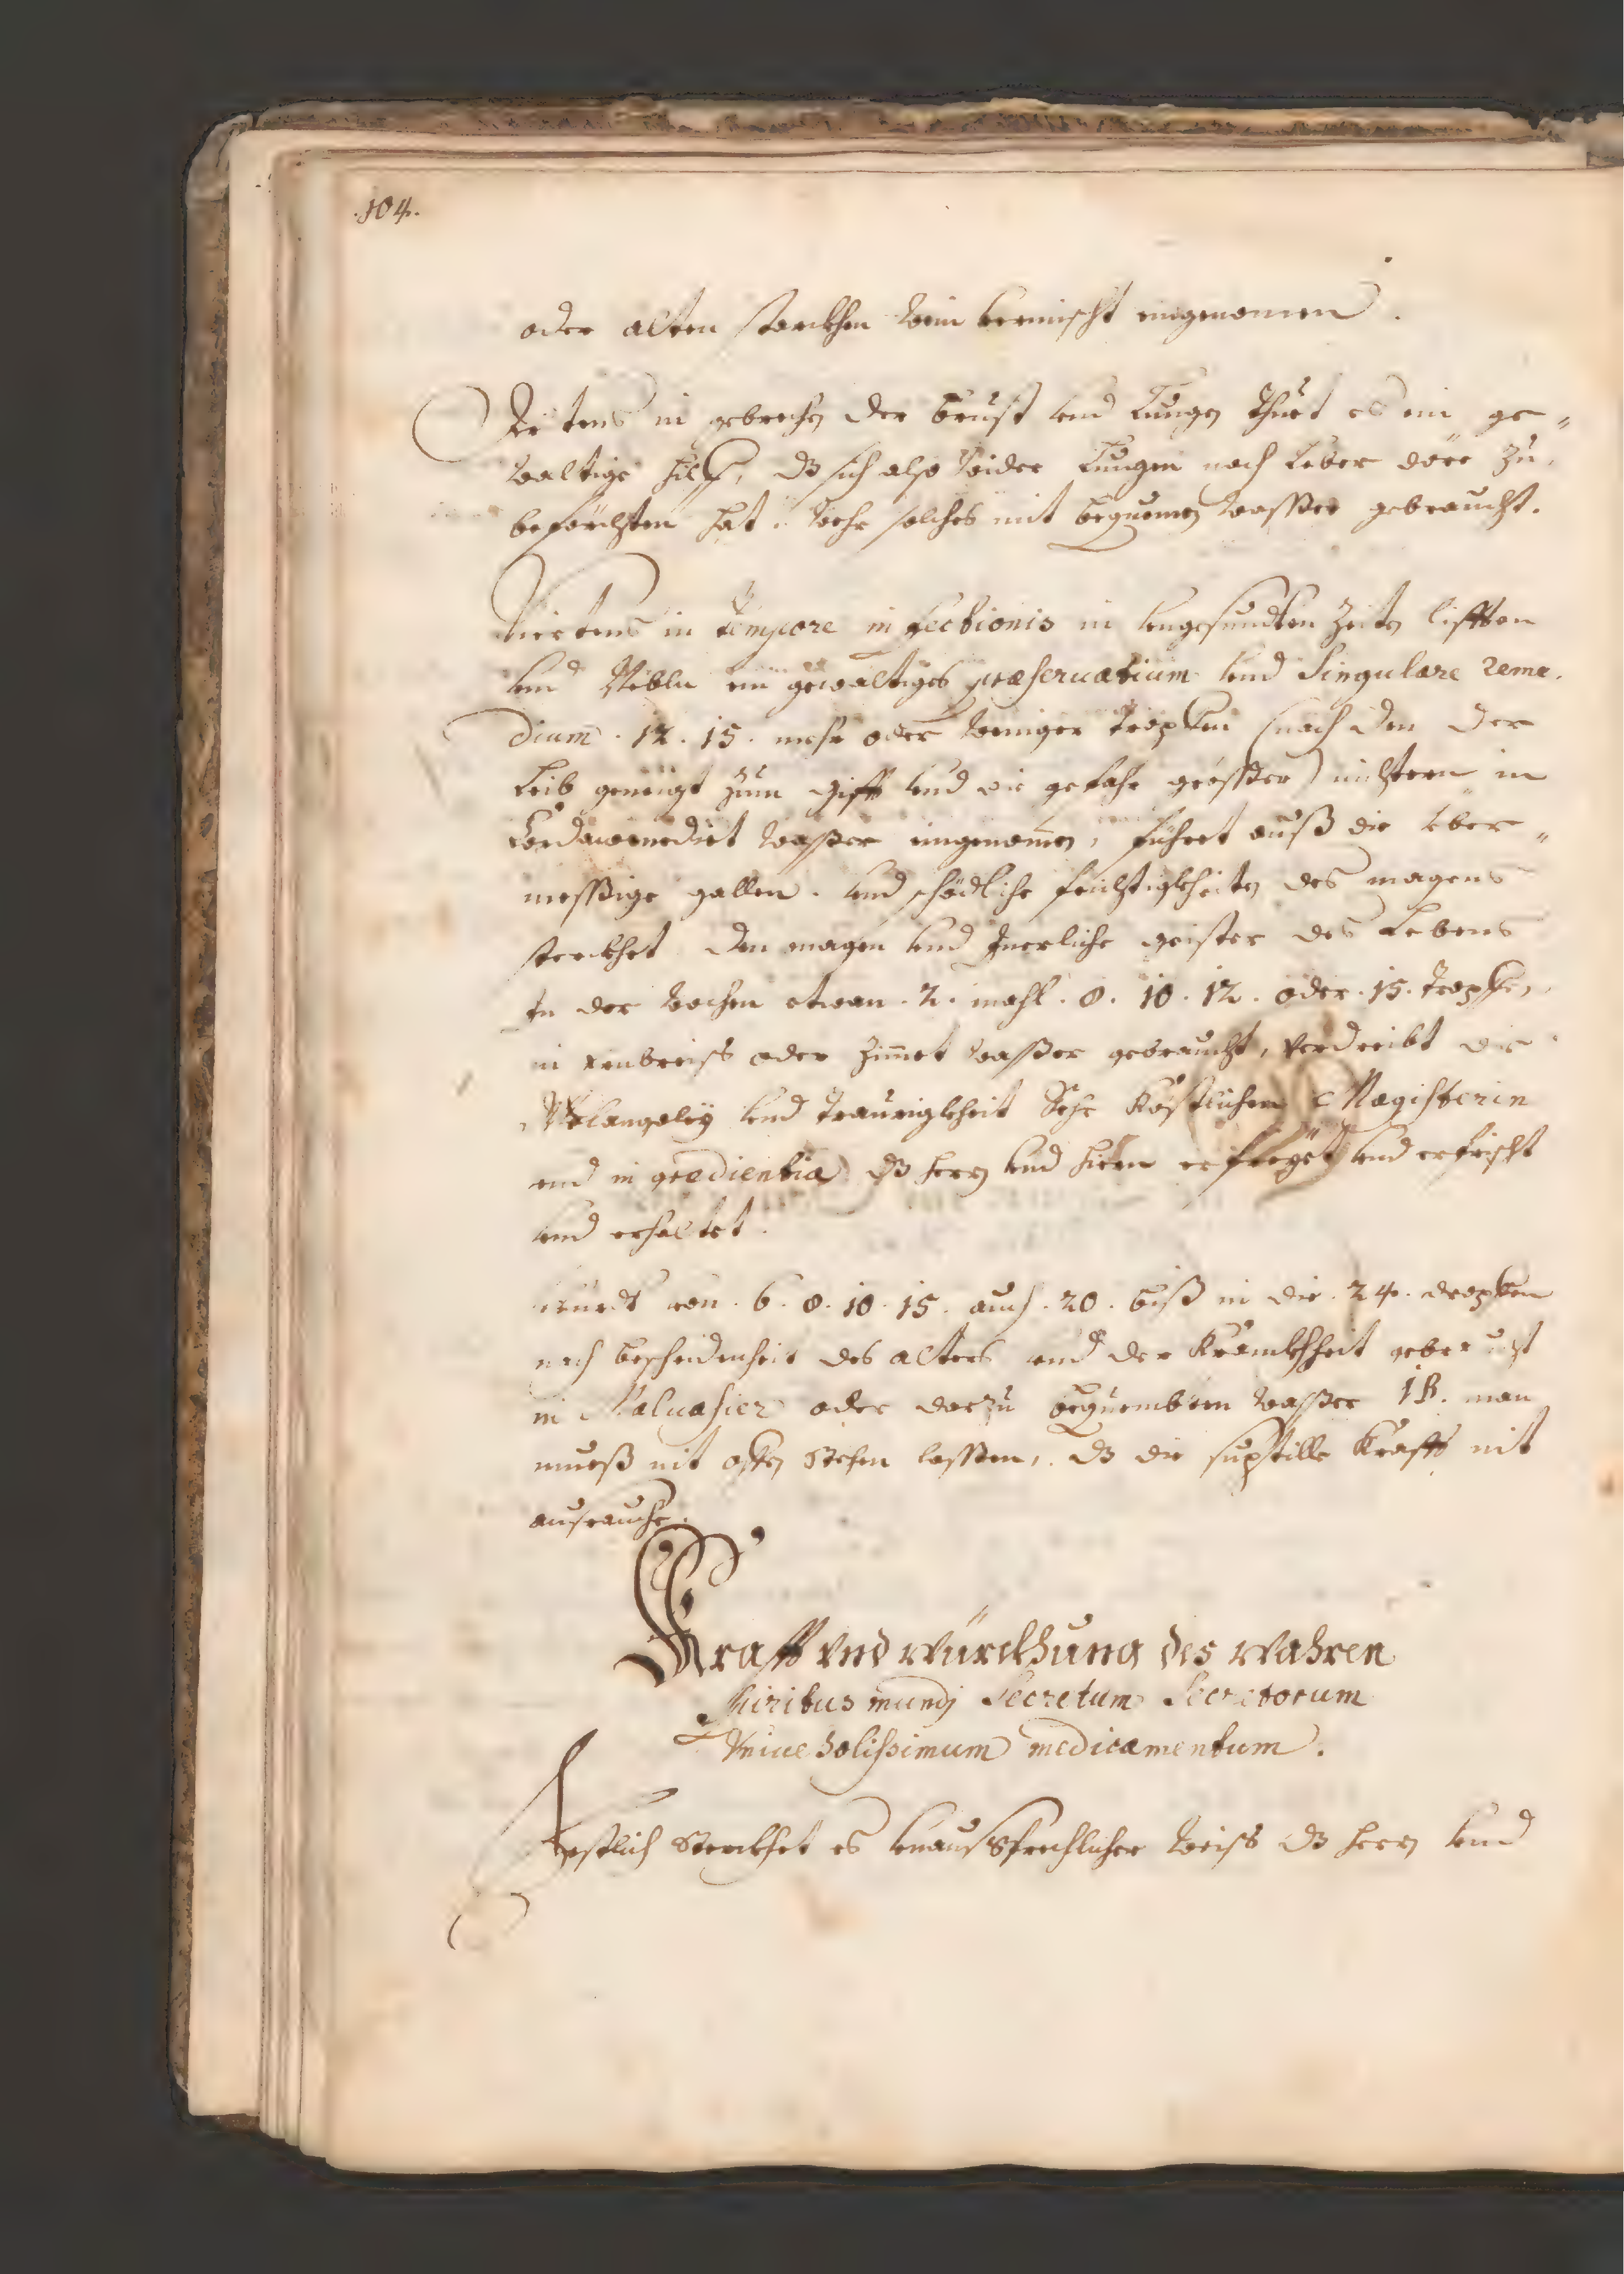 .104.
oder alten starckhen wein vermischt eingenomen.
in gebrechen der brust vnd Lungen thuet es ein ge„
waltige hilff, dz sich also weder Lungen noch Leber dörr zu,
beförchten hat. wehr solches mit bequemen wasser gebraucht.
Viertens in tempore infectionis in vngesundten Zeiten lifften
vnd Nebln ein gewaltiges præseruatium vnd Singulare reme„
dium. 12. 15. mehr oder weniger tropfen (nach dem der
Leib geneigt zum gifft vnd die gefahr grösser) niechtern in
Cordawenedict wasser eingenomen, führet auß die Vber„
messige gallen. vnd schödliche feichtigkheiten des magens
sterckhet den magen vnd Inerliche geister des Lebens
In der wochen etwan. 2. mahl. 8. 10. 12. oder. 15. tropfen,
in oder Zimet wasser gebraucht, verdreibt die
Melangoley vnd traurigkheit Sehr Köstlichen Magisterin
vnd ingredientia dz herz vnd hiern vnd erfrischt
vnd erhaltet.
würdt von. 6. 8. 10. 15. auch. 20. biß in die. 24. dropfen
nach bescheidenheit des alters vnd der Kranckhheit gebraucht
in Maluasier oder darzu bequemben wasser man
mueß nit offen stehen lassen, dz die suptille Krafft nit
ausrauche.
Krafft vnd würckhung des wahren
Spiritus mundj Secretum Secretorum
Vniuersalissimum medicamentum.
Erstlich sterckhet es vnaussprechlicher weiss dz herz vnd